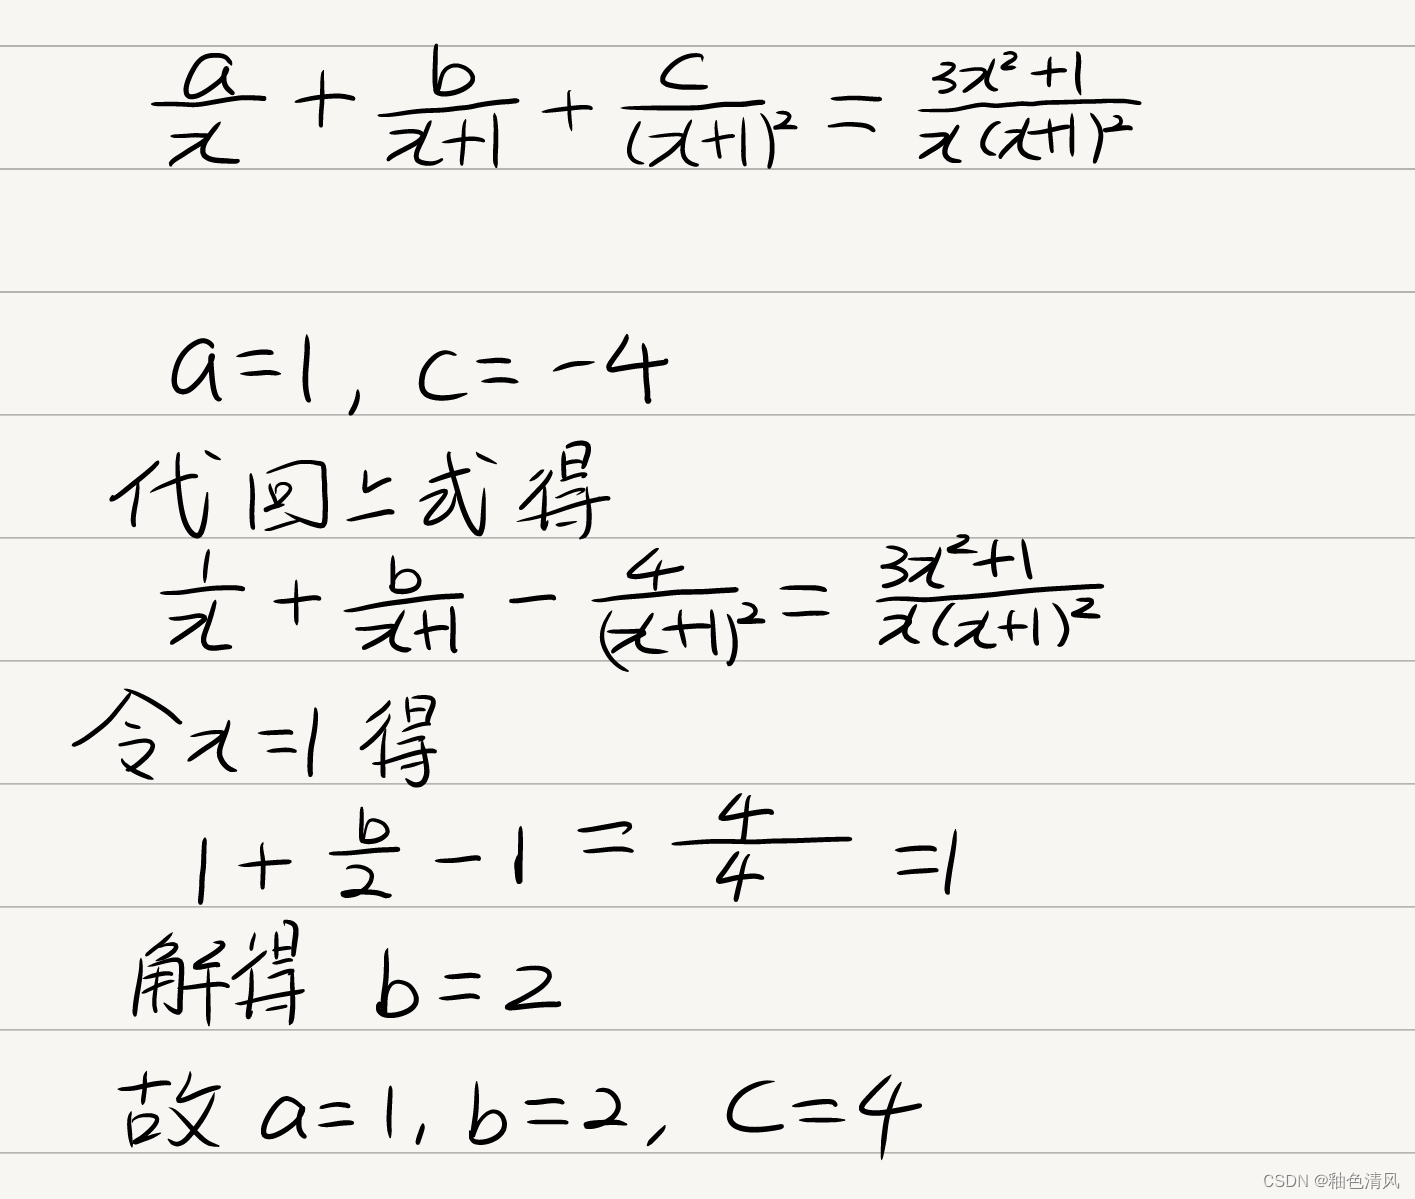 a/x + b/(x+1) + c/(x+1)² = (3x²+1)/(x(x+1)²)
a=1, c=-4
代回上式得
1/x + b/(x+1) - 4/(x+1)² = (3x²+1)/(x(x+1)²)
令x=1得
1 + b/2 - 1 = 4/4 =1
解得 b=2
故 a=1, b=2, c=4
CSDN @釉色清风